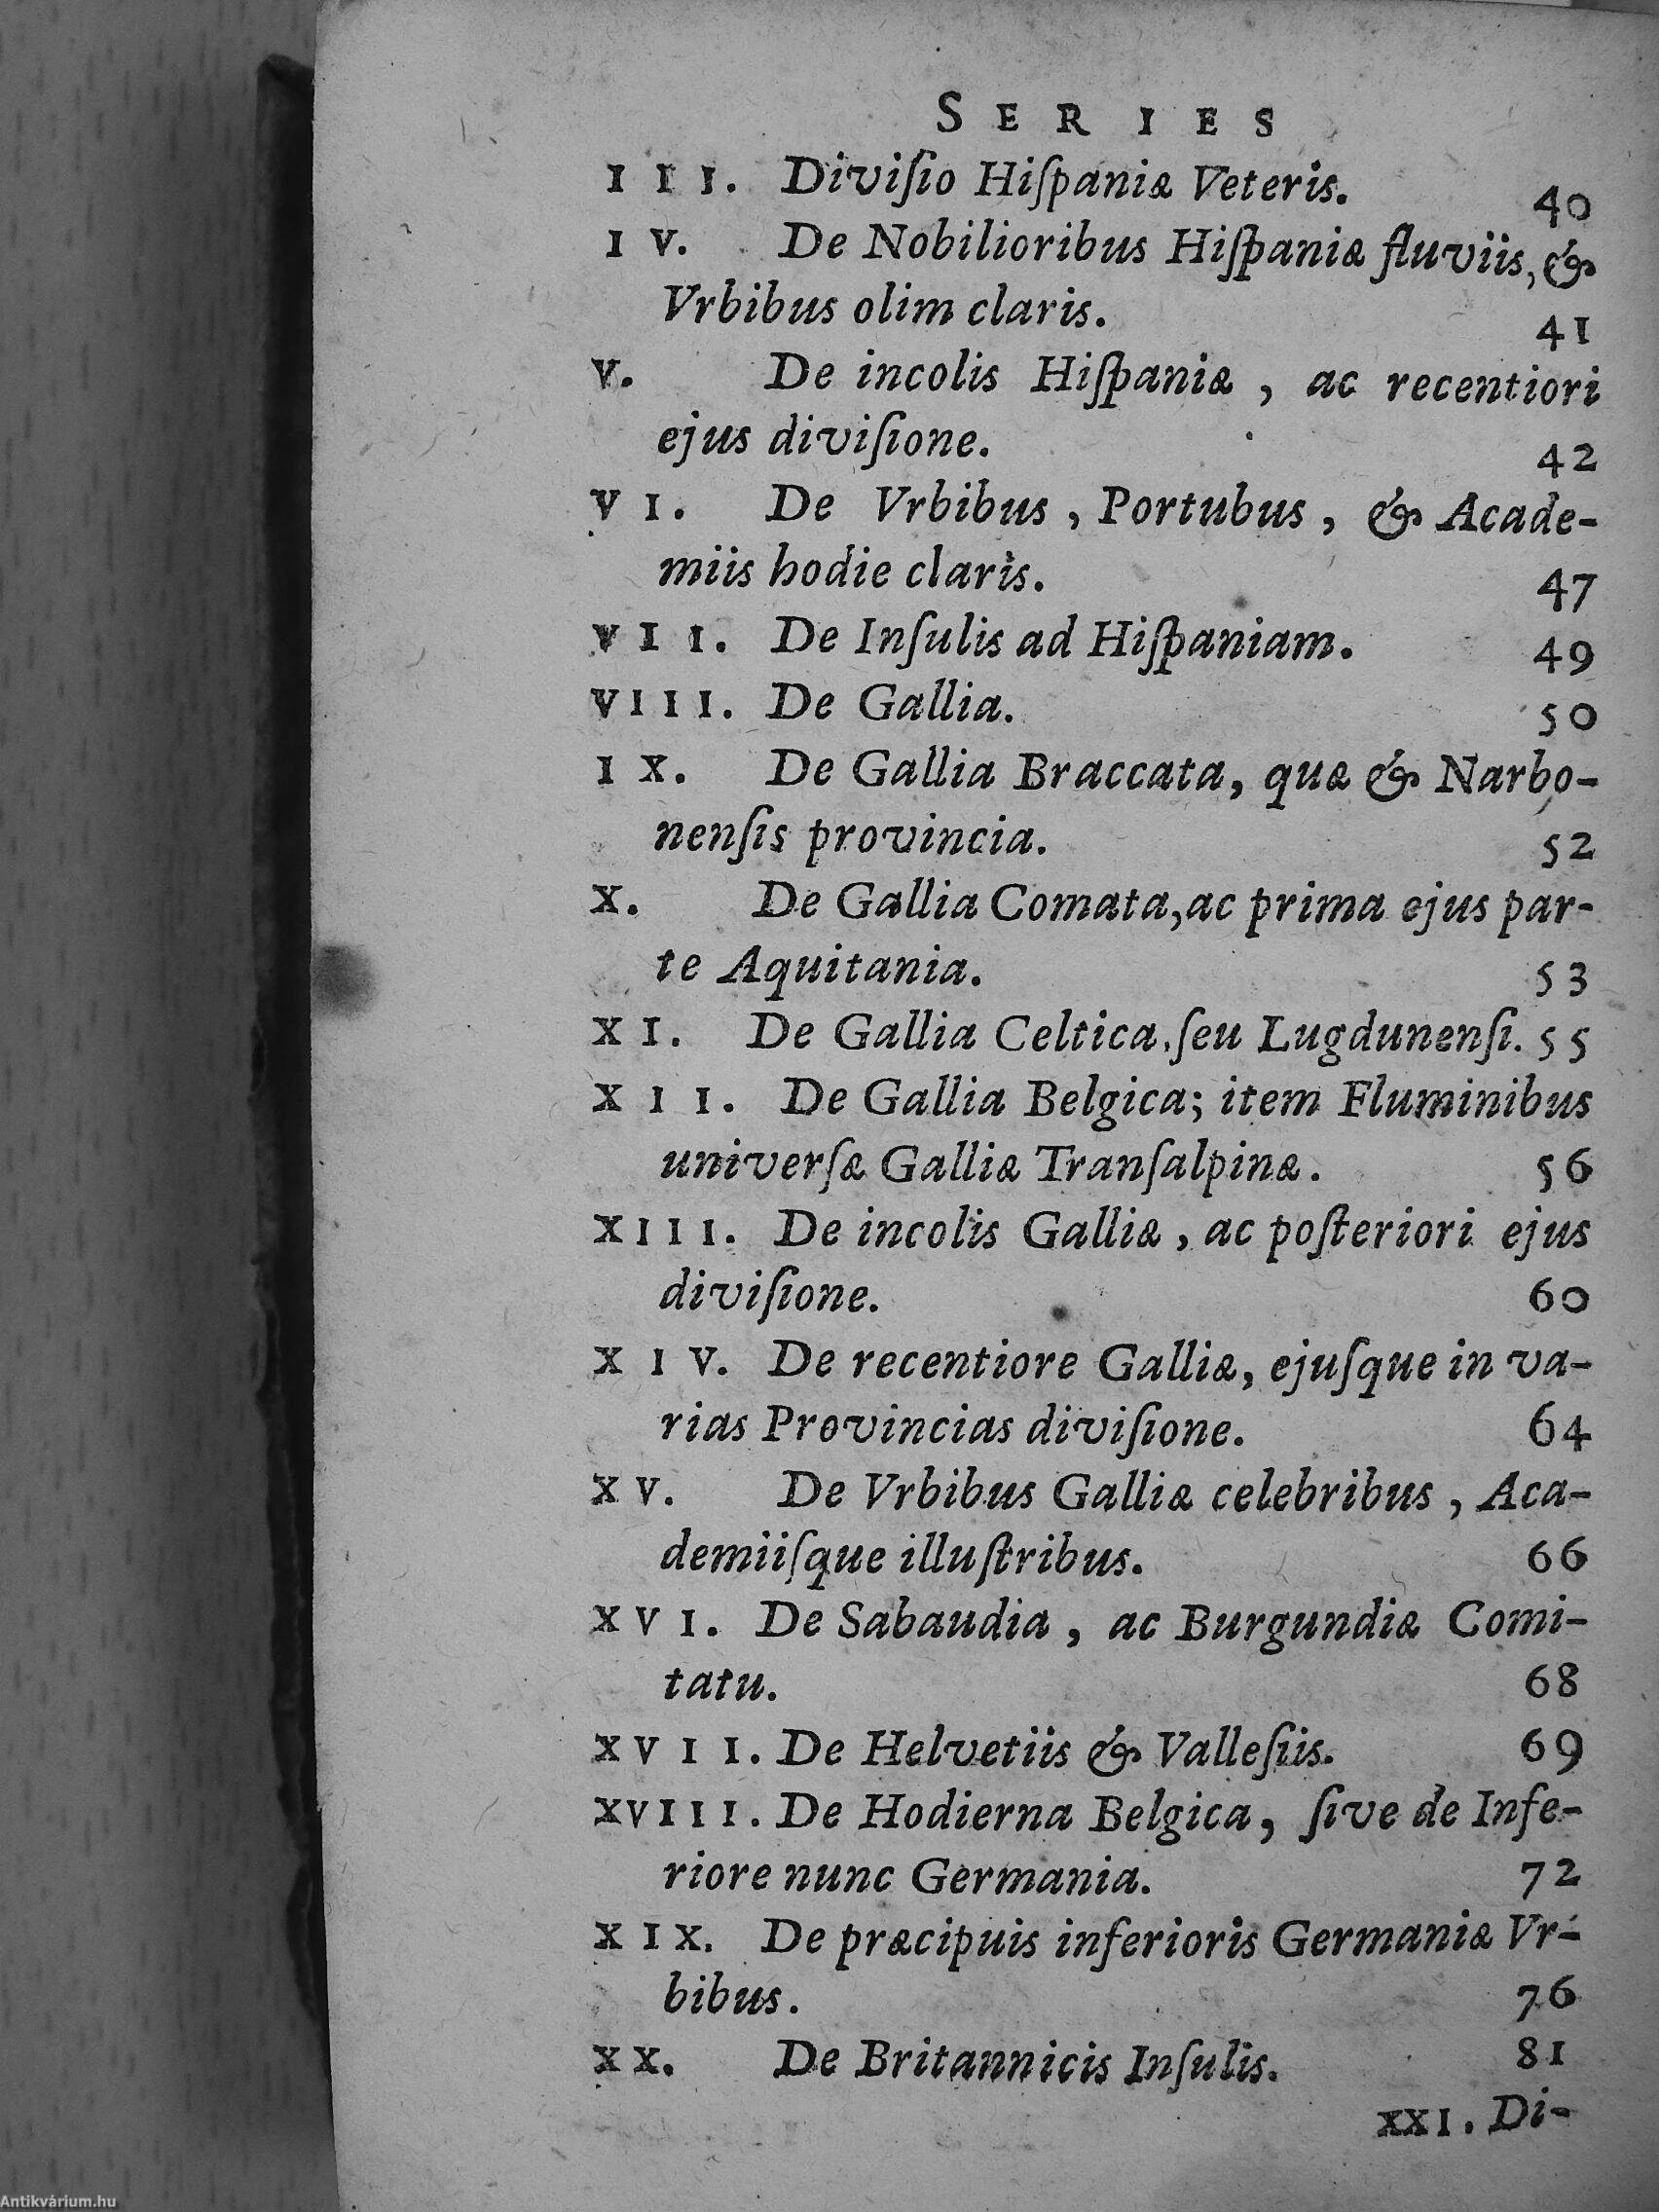 SERIES
III. Diviſio Hiſpaniæ Veteris. 40
IV. De Nobilioribus Hiſpaniæ fluviis, &
Vrbibus olim claris. 41
V. De incolis Hiſpaniæ, ac recentiori
ejus diviſione. 42
VI. De Vrbibus, Portubus, & Acade-
miis hodie claris. 47
VII. De Inſulis ad Hiſpaniam. 49
VIII. De Gallia. 50
IX. De Gallia Braccata, quæ & Narbo-
nenſis provincia. 52
X. De Gallia Comata, ac prima ejus par-
te Aquitania. 53
XI. De Gallia Celtica, ſeu Lugdunenſi. 55
XII. De Gallia Belgica; item Fluminibus
univerſæ Galliæ Tranſalpinæ. 56
XIII. De incolis Galliæ, ac poſteriori ejus
diviſione. 60
XIV. De recentiore Galliæ, ejuſque in va-
rias Provincias diviſione. 64
XV. De Vrbibus Galliæ celebribus, Aca-
demiiſque illuſtribus. 66
XVI. De Sabaudia, ac Burgundiæ Comi-
tatu. 68
XVII. De Helvetiis & Valleſiis. 69
XVIII. De Hodierna Belgica, ſive de Infe-
riore nunc Germania. 72
XIX. De præcipuis inferioris Germaniæ Vr-
bibus. 76
XX. De Britannicis Inſulis. 81
XXI. Di-
Antikvárium.hu